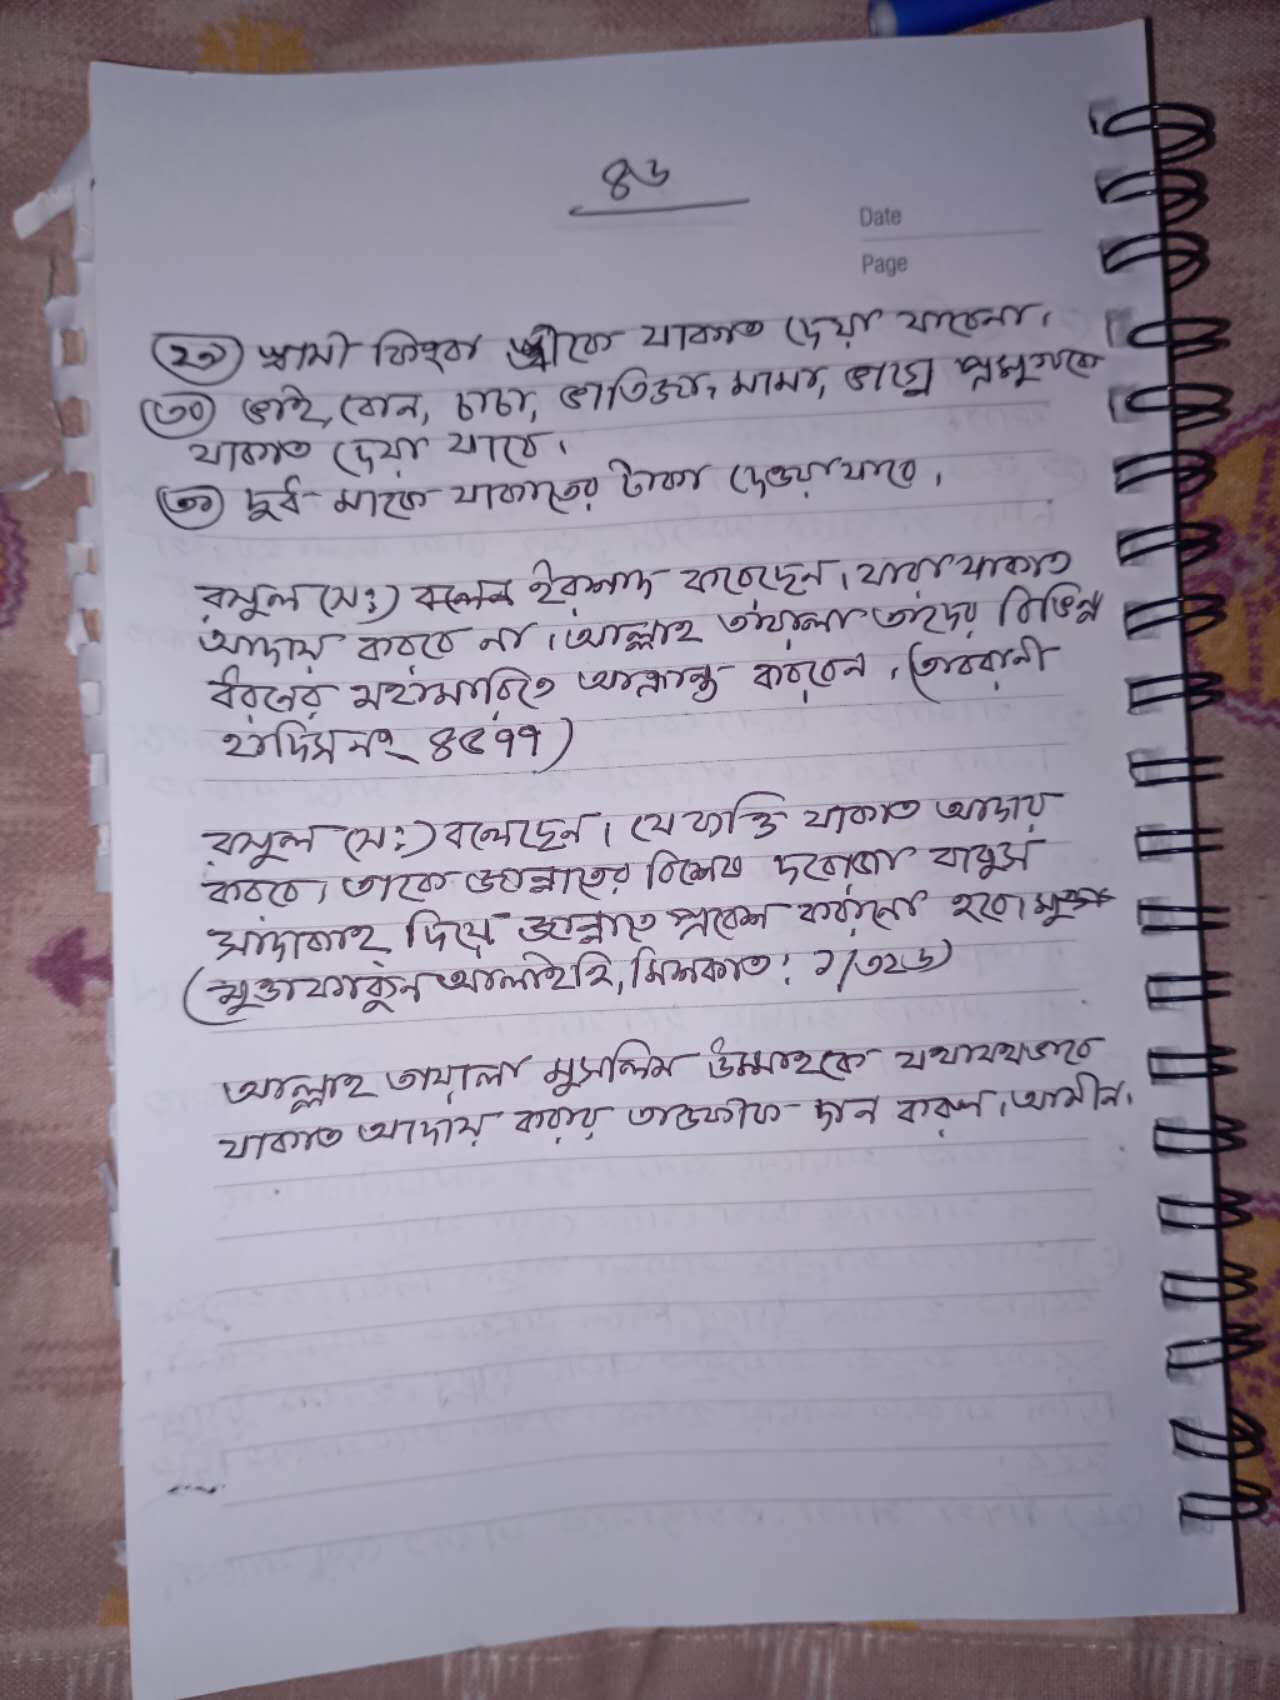 ৪৬
Date
Page
২৯ স্বামী কিংবা স্ত্রীকে যাকাত দেয়া যাবেনা।
৩০ ভাই, বোন, চাচা, ভাতিজা, মামা, ভাগ্নে প্রমুখকে
যাকাত দেয়া যাবে।
৩১ দুধ-মাকে যাকাতের টাকা দেওয়া যাবে।
রসুল (সঃ) ইরশাদ করেছেন। যারা যাকাত
আদায় করবে না। আল্লাহ তায়ালা তাদের বিভিন্ন
ধরনের মহামারিতে আক্রান্ত করবেন। (তাবরানী
হাদিস নং ৪৫৭৭)
রসুল (সঃ) বলেছেন। যে ব্যক্তি যাকাত আদায়
করবে, তাকে জান্নাতের বিশেষ দরোজা বাবুস
সাদাকাহ্ দিয়ে জান্নাতে প্রবেশ করানো হবে।
(মুত্তাফাকুন আলাইহি, মিশকাত: ১/৩২৬)
আল্লাহ তায়ালা মুসলিম উম্মাহকে যথাযথভাবে
যাকাত আদায় করার তাওফীক দান করুন। আমীন।